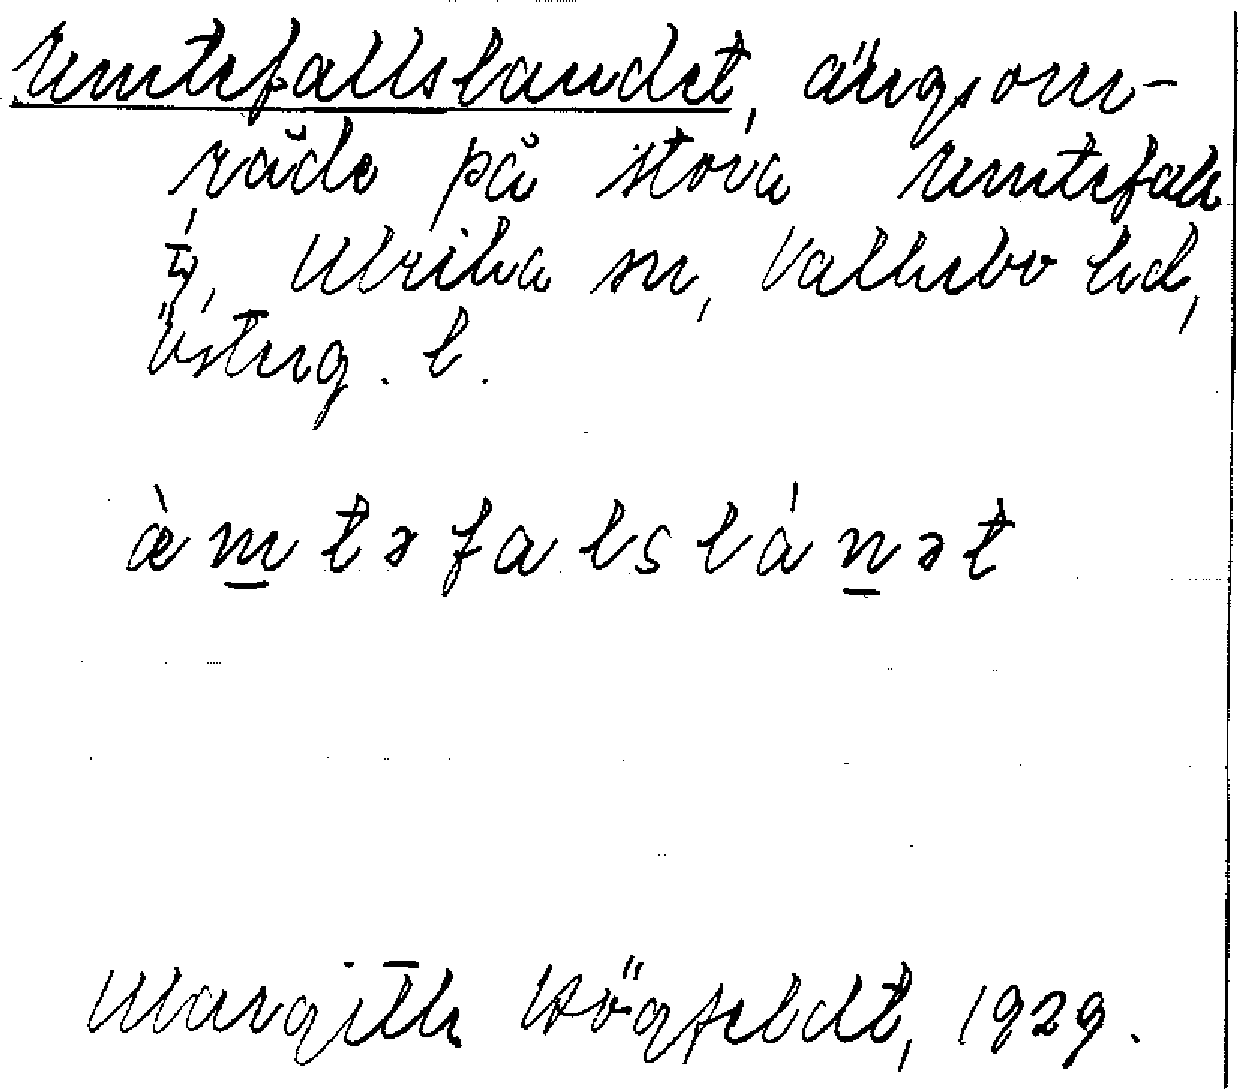 Emtefallslandet, ängsom-
råde på stora Emtefall
¼, Ulrika sn, Valkebo hd,
Österg. l.
æ̀m̲təfalslán̲ət
Margith Högfeldt, 1929.